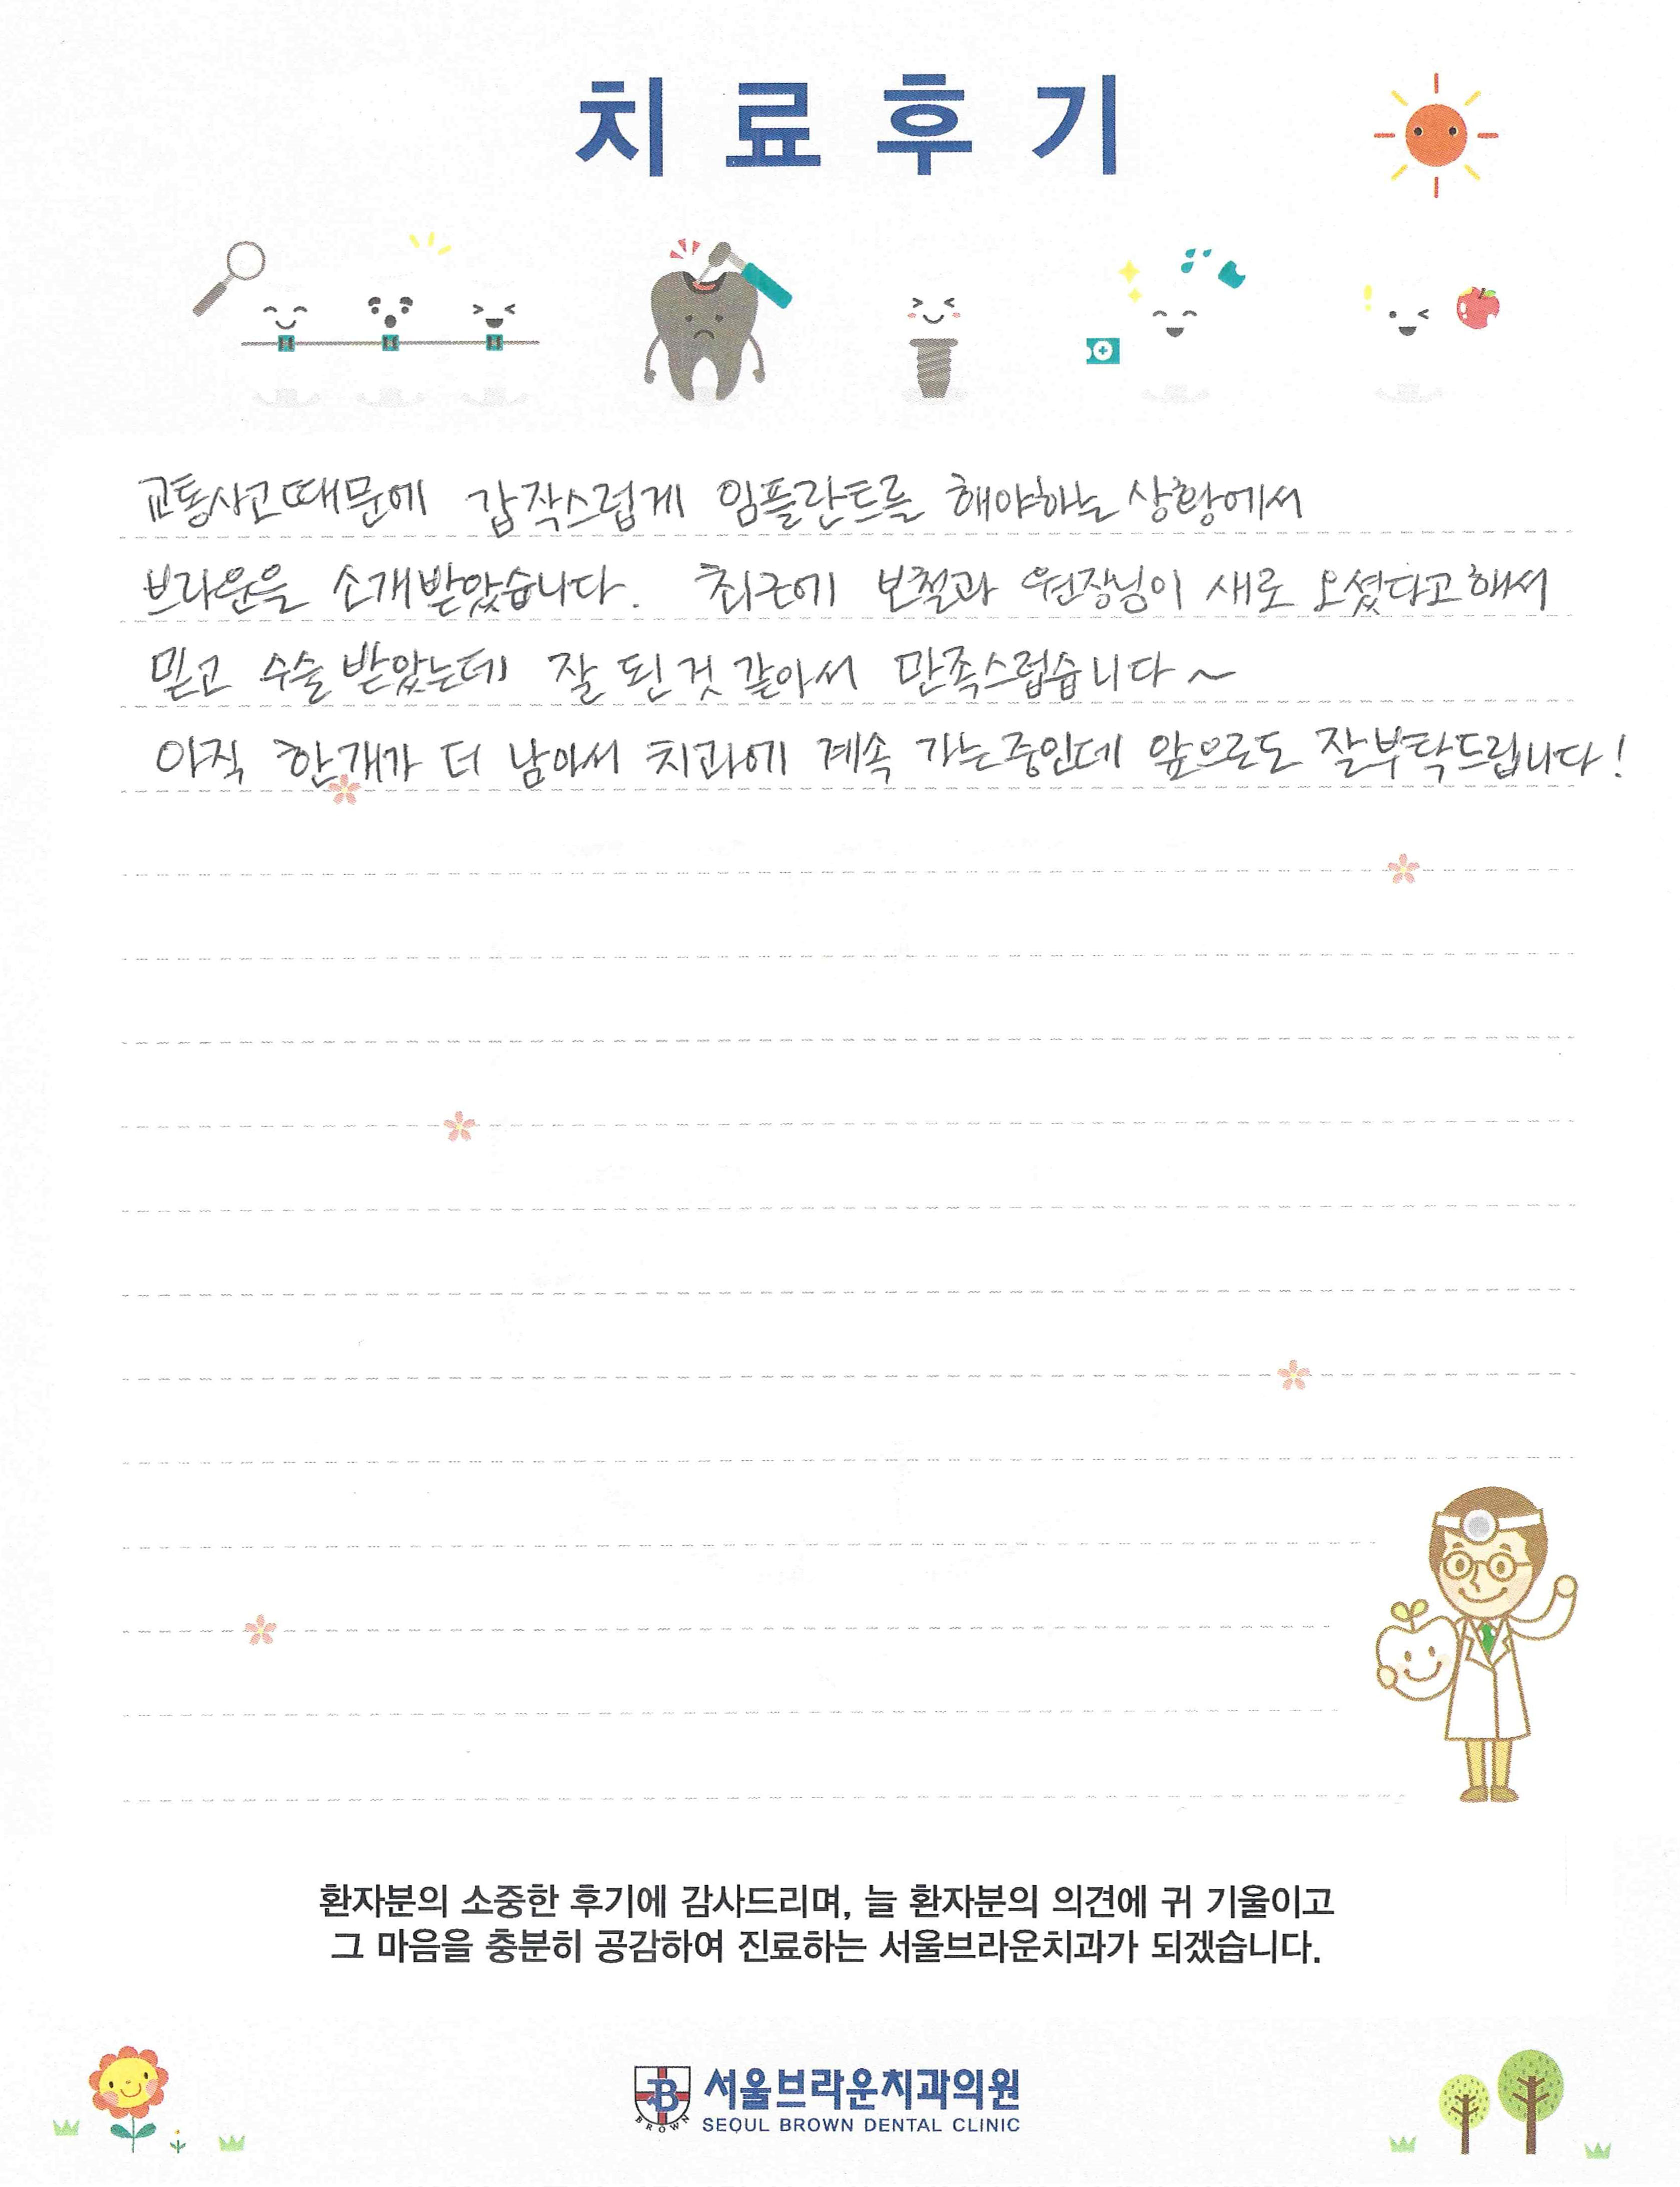 치료후기
교통사고때문에 갑작스럽게 임플란트를 해야하는 상황에서
브라운을 소개받았습니다. 최근에 보철과 원장님이 새로 오셨다고해서
믿고 수술 받았는데 잘 된것 같아서 만족스럽습니다~
아직 한개가 더 남아서 치과에 계속 가는중인데 앞으로도 잘부탁드립니다!
환자분의 소중한 후기에 감사드리며, 늘 환자분의 의견에 귀 기울이고
그 마음을 충분히 공감하여 진료하는 서울브라운치과가 되겠습니다.
B
BROWN
서울브라운치과의원
SEOUL BROWN DENTAL CLINIC